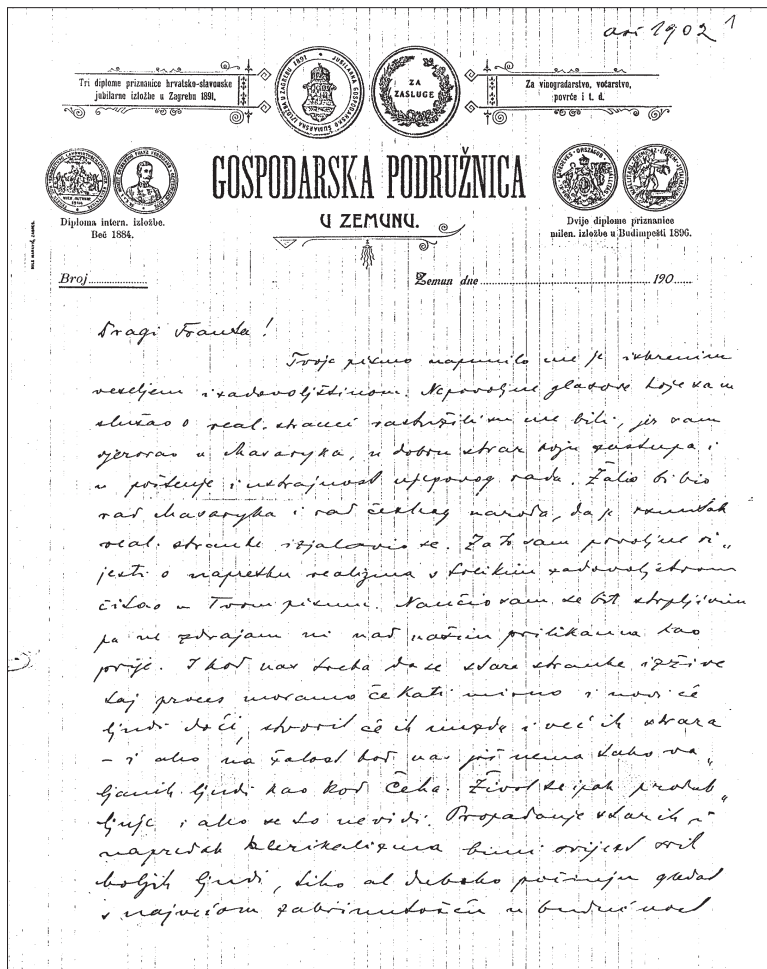 ari 1902 1
Tri diplome priznanice hrvatsko-slavonske
jubilarne izložbe u Zagrebu 1891.
ZA
ZASLUGE
Za vinogradarstvo, voćarstvo,
povrće i t. d.
GOSPODARSKA PODRUŽNICA
U ZEMUNU.
Diploma intern. izložbe.
Beč 1884.
Dvije diplome priznanice
milen. izložbe u Budimpešti 1896.
Broj
Zemun dne 190
Dragi Franta!
Tvoje pismo napunilo me je iskrenim
veseljem i zadovoljštinom. Nepovoljne glasove koje sam
slušao o real. stranci rastužili su me bili, jer sam
vjerovao u Masaryka, u dobru stvar koju zastupa i
u poštenje i ustrajnost njegovog rada. Žalio bi bio
rad Masaryka i rad češkog naroda, da je
real. stranke izjalovio se. Zato sam povoljne vi„
jesti o napretku realizma s tolikim zadovoljstvom
čitao u Tvom pismu. Naučio sam se bit strpljivim
pa ne zdvajam ni nad našim prilikama kao
prije. I kod nas treba da se stare stranke izžive
taj proces moramo čekati mirno i novi će
ljudi doći, stvorit će ih nužda i već ih stvara
- i ako na žalost kod nas još nema tako va„
ljanih ljudi kao kod Čeha. Život se ipak produb„
ljuje i ako se to nevidi. Propadanje starih i
napredak klerikalizma budi svijest svih
boljih ljudi, tiho al duboko počinju gledat
s najvećom zabrinutošću u budućnost